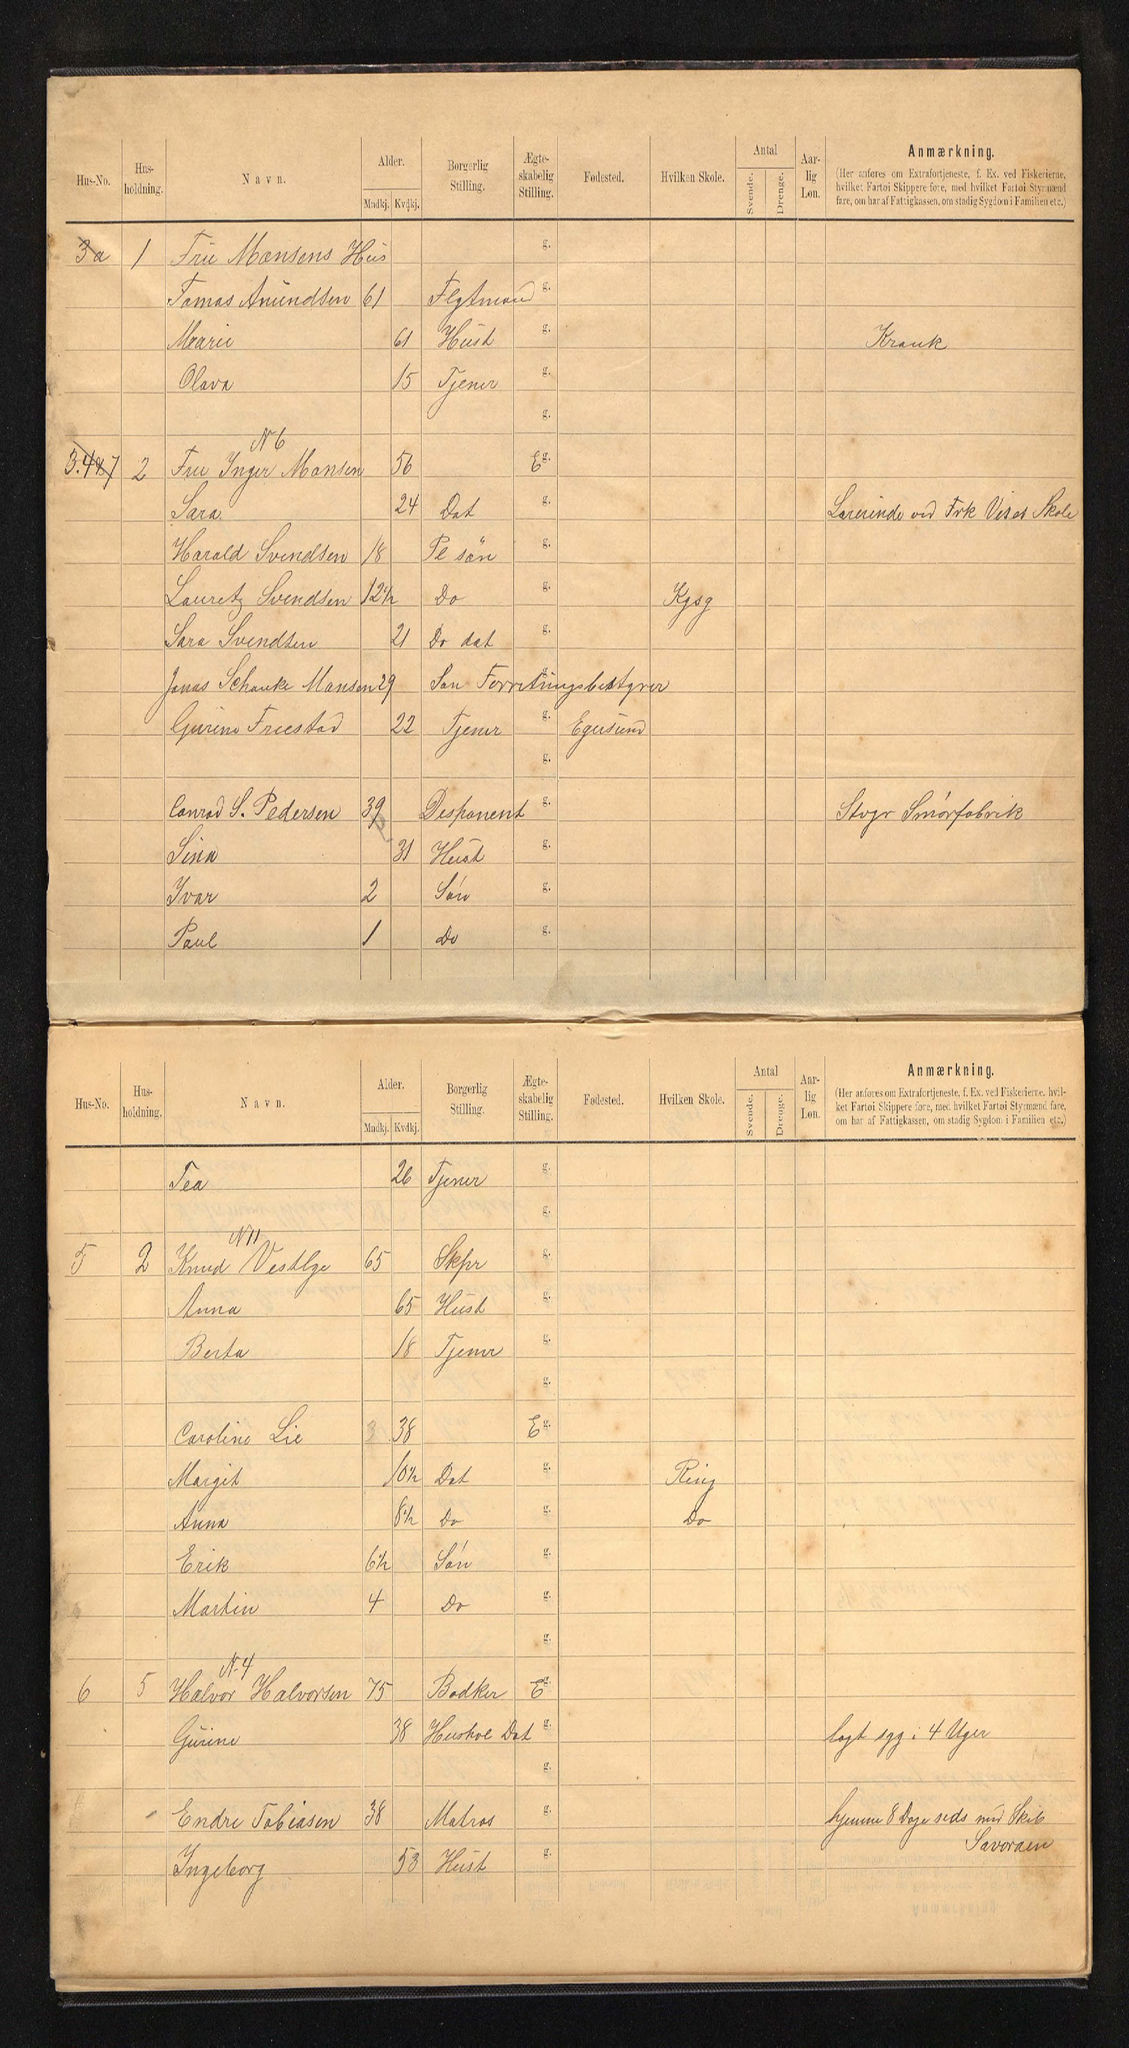 Hus-No. Hus-holdning. Navn. Alder. Mndkj. Kvdkj. Borgerlig Stilling. Ægte-skabelig Stilling. Fødested. Hvilken Skole. Antal Svende. Drenge. Aar-lig Løn. Anmærkning.
(Her anføres om Extrafortjeneste, f. Ex. ved Fiskerierne,
hvilket Fartøi Skippere føre, med hvilket Fartøi Styrmænd
fare, om har af Fattigkassen, om stadig Sygdom i Familien etc.)
3a 1 Frue Mansens Hus g.
Tomas Amundsen 61 Flytmand g.
Marie 61 Hust g. Krank
Olava 15 Tjener g.
g.
N 6
3.4&7 2 Frue Inger Mansen 56 E g.
Sara 24 Dat g. Lærerinde ved Frk Skole
Harald Svendsen 18 Pl søn g.
Lauretz Svendsen 12½ Do g. Kgsg
Sara Svendsen 21 Do dat g.
Jonas Schanke Mansen 29 Søn Forretningsbestyrer g.
Gurine Freestad 22 Tjener g. Egersund
g.
Conrad S. Pedersen 39 Desponent g. Stvgr Smørfabrik
Sina 31 Hust g.
Ivar 2 Søn g.
Paul 1 Do g.
Hus-No. Hus-holdning. Navn. Alder. Mndkj. Kvdkj. Borgerlig Stilling. Ægte-skabelig Stilling. Fødested. Hvilken Skole. Antal Svende. Drenge. Aar-lig Løn. Anmærkning.
(Her anføres om Extrafortjeneste, f. Ex. ved Fiskerierne, hvil-
ket Fartøi Skippere føre, med hvilket Fartøi Styrmænd fare,
om har af Fattigkassen, om stadig Sygdom i Familien etc.)
Tea 26 Tjener g.
g.
N 11
5 2 Knud Vestlye 65 Skpr g.
Anna 65 Hust g.
Berta 18 Tjener g.
g.
Caroline Lie 3 38 E g.
Margit 10½ Dat g. Ring
Anna 8½ Do g. Do
Erik 6½ Søn g.
Martin 4 Do g.
g.
N. 4
6 5 Halvor Halvorsen 75 Bødker E g.
Gurine 38 Hushol Dat g. lagt syg i 4 Uger
g.
Endre Tobiasen 38 Matros g. hjemme 8 Dage sids med Skib
Savoraen
Ingeborg 53 Hust g.